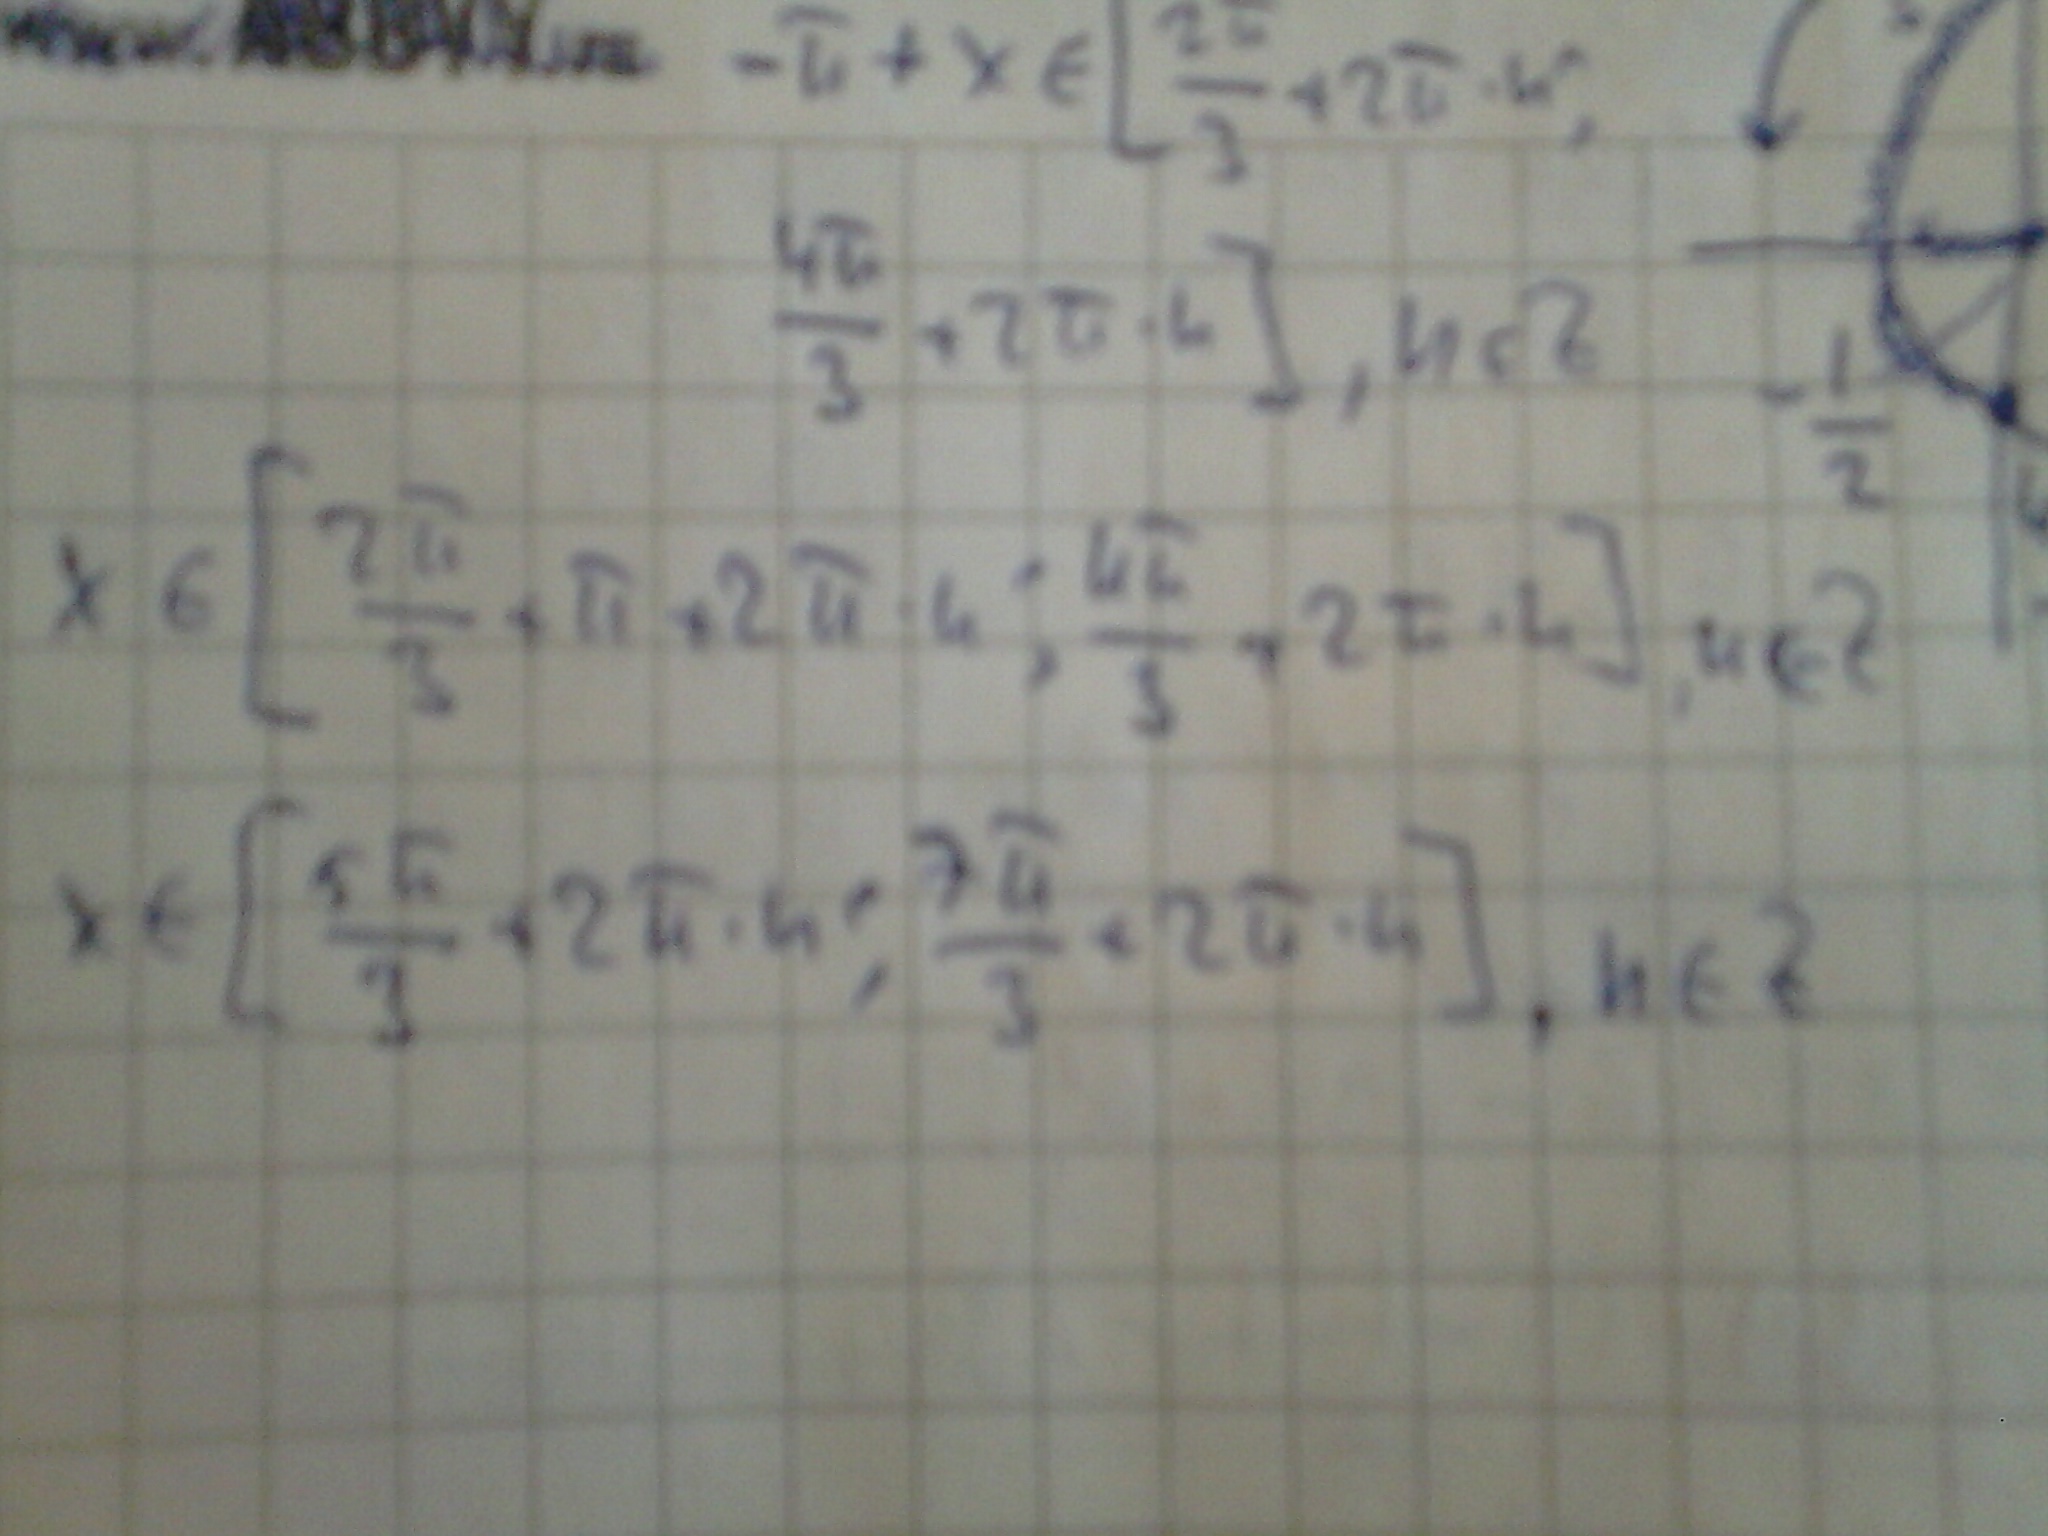 -π + x ∈ [2π/3 + 2π·n;
4π/3 + 2π·n], n ∈ Z
-1/2
x ∈ [2π/3 + π + 2π·n; 4π/3 + 2π·n], n ∈ Z
x ∈ [5π/3 + 2π·n; 7π/3 + 2π·n], n ∈ Z